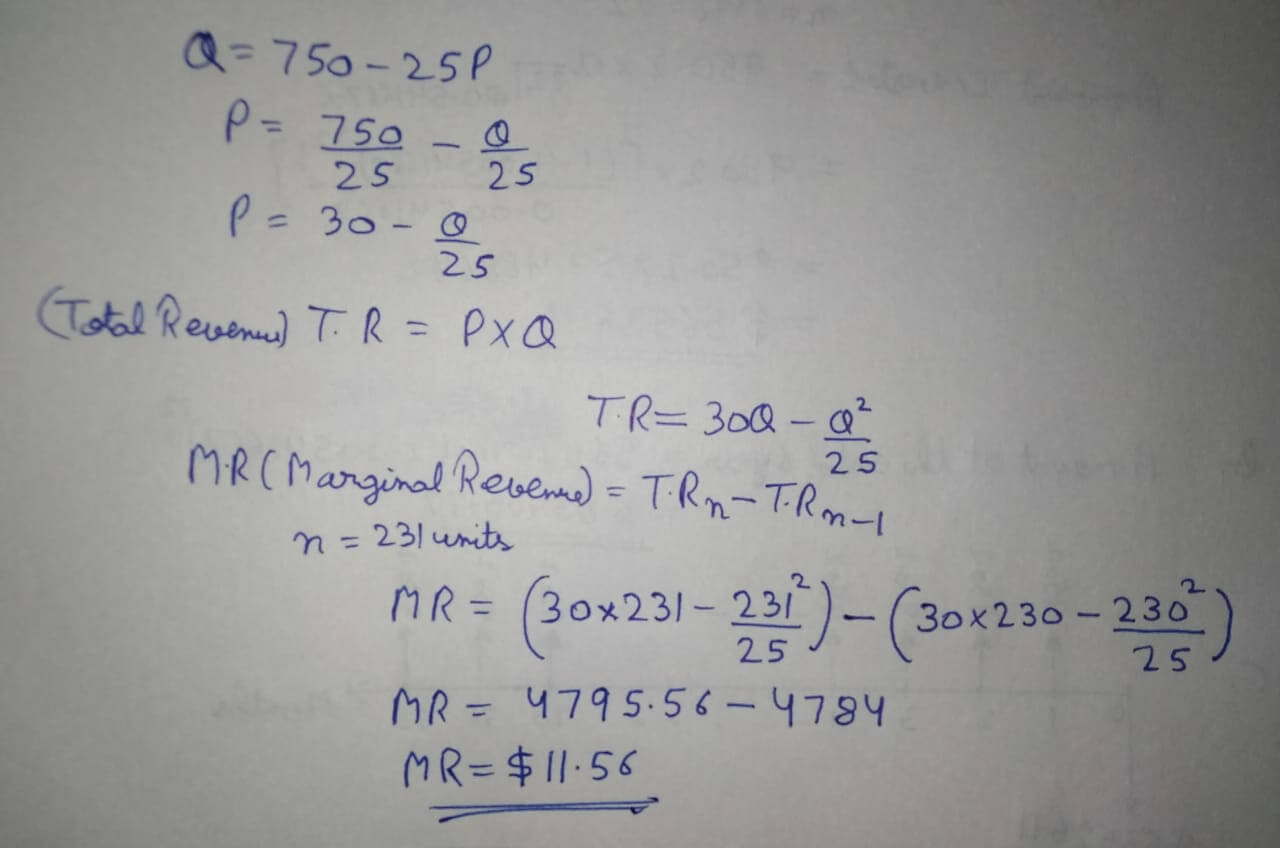 Q = 750 - 25P
P = 750/25 - Q/25
P = 30 - Q/25
(Total Revenue) T.R = P×Q
T.R = 30Q - Q²/25
M.R (Marginal Revenue) = T.Rₙ - T.Rₙ₋₁
n = 231 units
MR = (30×231 - 231²/25) - (30×230 - 230²/25)
MR = 4795.56 - 4784
MR = $11.56